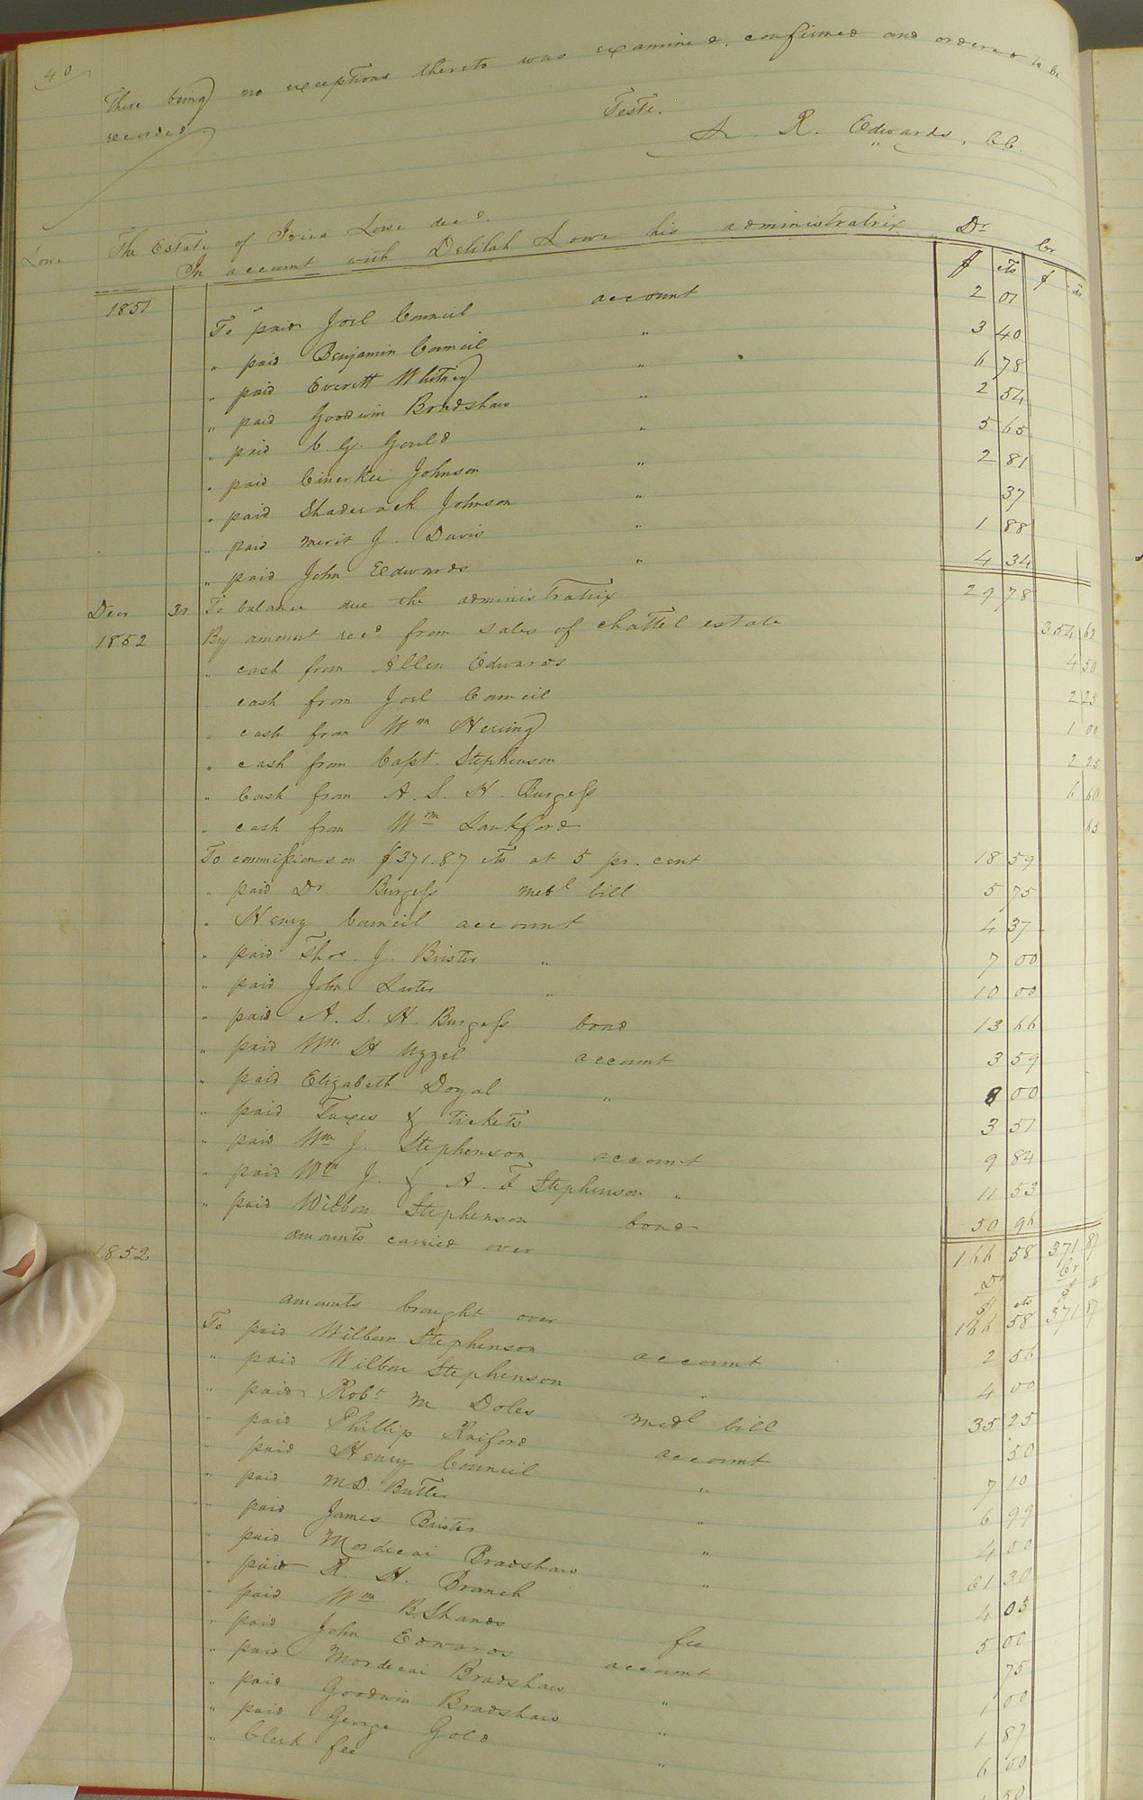 40
There being no exceptions thereto was examined, confirmed and ordered to be
recorded
Teste.
R. Edwards, C.C.
Lowe The Estate of Lowe decd.
In account with Delilah Lowe his administratrix Dr Cr
$ cts $ cts
1851 To paid Joel Council account 2 01
" paid Benjamin Council " 3 40
" paid Everett Whitney " 6 78
" paid Goodwin Bradshaw " 2 54
" paid C. G. Gould " 5 65
" paid Johnson " 2 81
" paid Shaderach Johnson " 37
" paid Merit J. Davis " 1 88
" paid John Edwards " 4 34
Decr 31 To balance due the administratrix 29 78
1852 By amount recd from sales of chattel estate 354 62
" cash from Allen Edwards 4 50
cash from Joel Council 2 25
" cash from Wm Herring 1 00
" cash from Capt. Stephenson 2 25
" Cash from A. S. H. Burgess 6 60
" cash from Wm Lankford 65
To commissions on $371.87 cts at 5 pr. cent 18 59
" paid Dr. Burgess medl bill 5 75
" Henry Council account 4 37
" paid Thos J. Brister " 7 00
" paid John Luter " 10 00
" paid A. S. H. Burgess bond 13 66
" paid Wm H Uzzel account 3 59
" paid Elizabeth Doyal " 8 00
" paid Taxes & tickets 3 51
" paid Wm J. Stephenson account 9 84
" paid Wm J. & A. F Stephenson " 11 53
" paid Wilbon Stephenson bond 50 96
amounts carried over 166 58 371 87
1852 Dr Cr
$ cts $ cts
amounts brought over 166 58 371 87
To paid Wilbon Stephenson account 2 56
" paid Wilbon Stephenson " 4 00
" paid Robt M Doles medl bill 35 25
" paid Phillip Raiford account 50
" paid Henry Council " 7 10
" paid M.D. Butler " 6 99
" paid James Brister " 4 00
" paid Mordecai Bradshaw " 61 30
" paid R. H. Branch 4 05
" paid Wm B Shands fee 5 00
" paid John Edwards account 75
" paid Mordecai Bradshaw " 1 00
" paid Goodwin Bradshaw " 1 87
" paid George Gold " 6 00
" Clerk fee 50